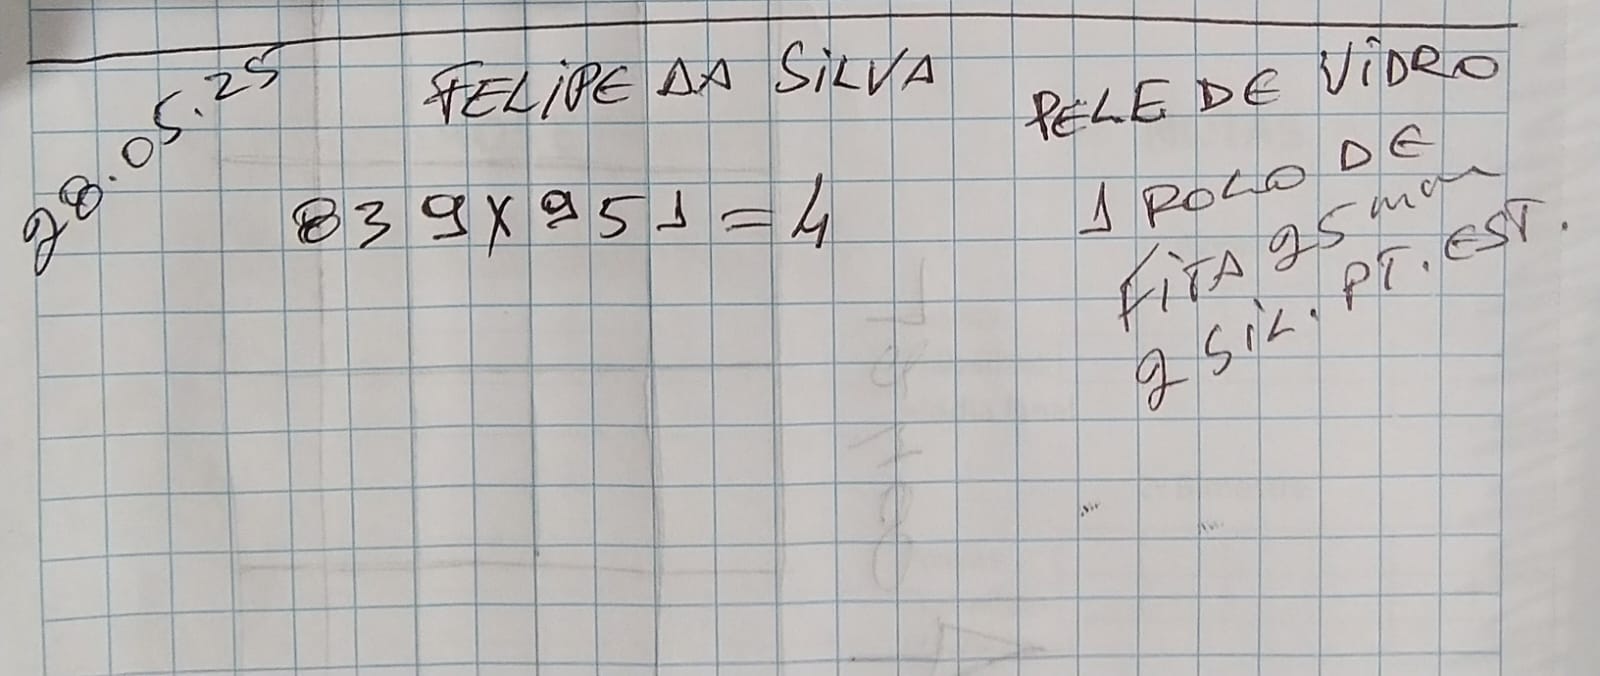 28.05.25
FELIPE DA SILVA
839X951=4
PELE DE VIDRO
1 ROLO DE
FITA 25mm
2 SIL. PT. EST.